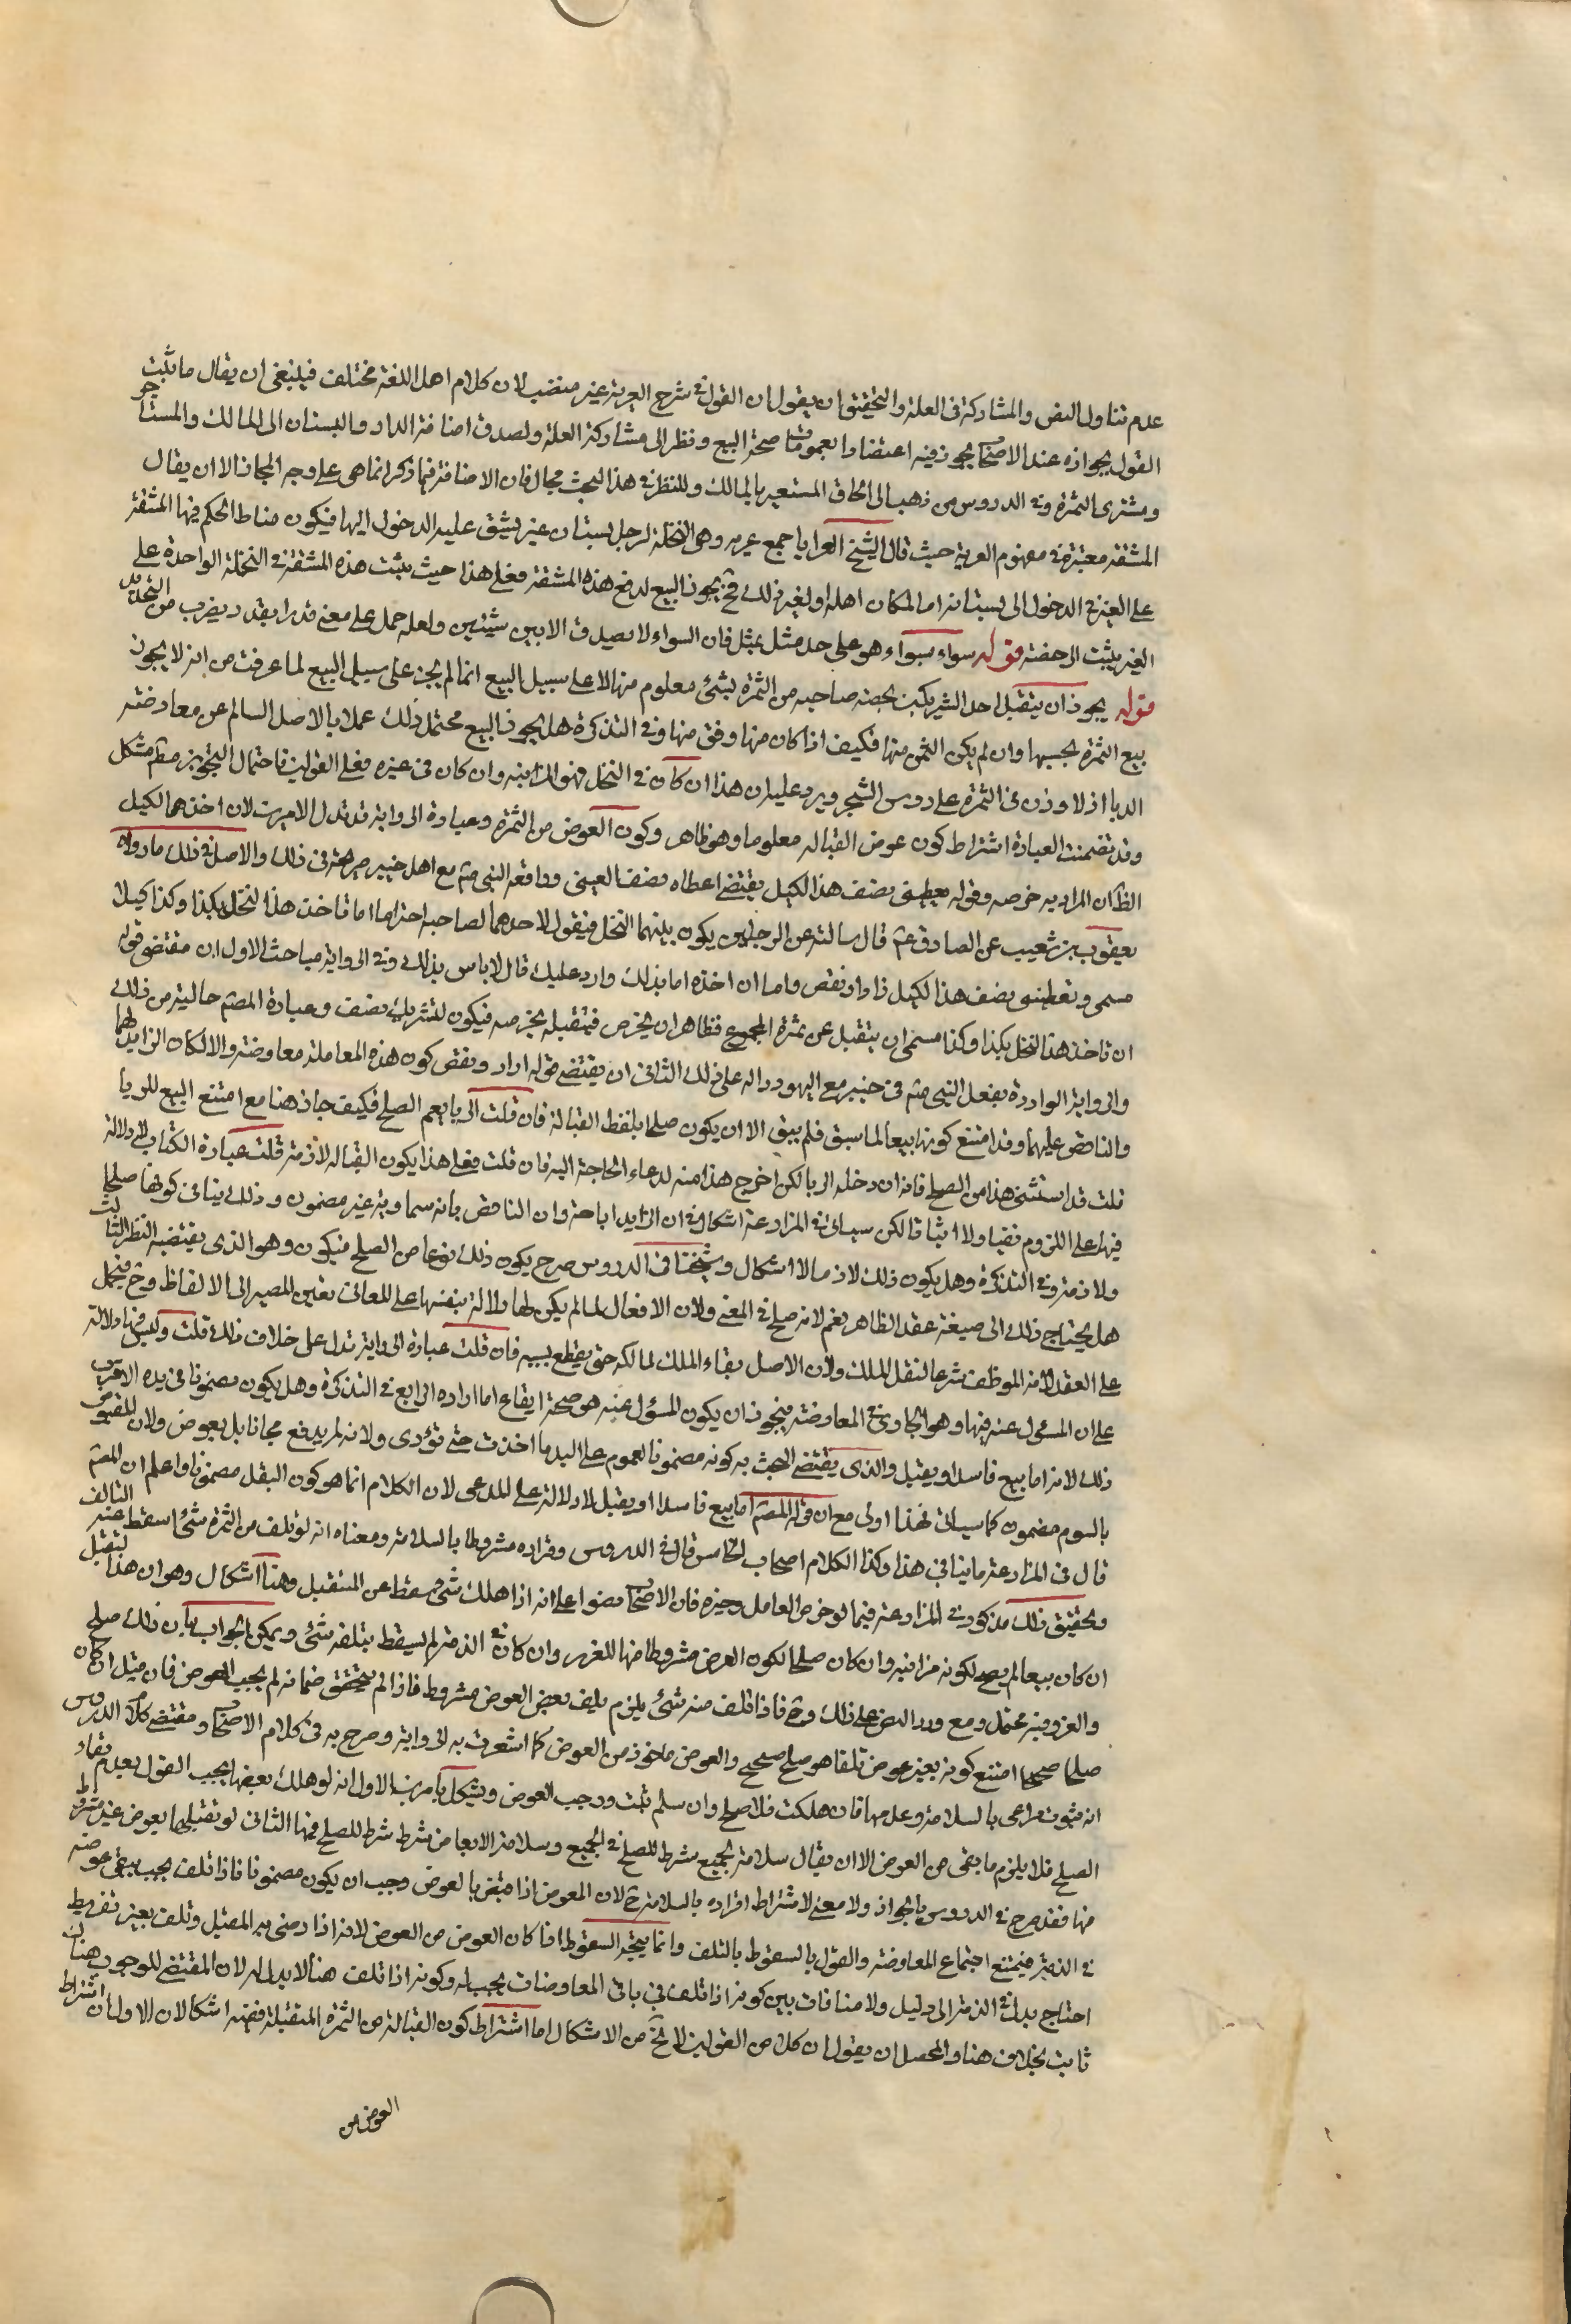 عدم تناول النص والمشاركة فى العلة والتحقيق ان يقول ان القول فى شرح العرية غير منضب لان كلام اهل اللغة مختلف فينبغى ان يقال ما يثبت
القول بجوازه عند الاصحاب يجوز فيه اعتضادا بعمومات صحة البيع ونظر الى مشاركة العلة ولصدق اضافة الدار والبستان الى المالك والمستاجر
ومشترى الثمرة وفى الدروس من ذهب الى الحاق المستعير بالمالك وللنظر فى هذا البحث مجال فان الاضافة فيما ذكر انما هى على وجه المجاز الا ان يقال
المشقة معتبرة فى مفهوم العرية حيث قال الشيخ العرايا جمع عرية وهى النخلة لرجل ببستان غيره يشق عليه الدخول اليها فيكون مناط الحكم فيها المشقة
على الغير فى الدخول الى بستانه اما لمكان اهله او لغير ذلك فح يجوز البيع لدفع هذه المشقة فعلى هذا حيث يثبت هذه المشقة فى النخلة الواحدة على
الغير يثبت الرخصة قوله سواء بسواء هو على حد مثل بمثل فان السواء لا يصدق الا بين شيئين ولعله حمل على معنى قدرا بقدر بضرب من التجريد
قوله يجوز ان يتقبل احد الشريكين بحصة صاحبه من الثمرة بشئ معلوم منها لا على سبيل البيع انما لم يجز على سبيل البيع لما عرفت من انه لا يجوز
بيع الثمرة بجنسها وان لم يكن الثمن منها فكيف اذا كان منها وفق منها وفى التذكرة هل يجوز البيع محتمل ذلك عملا بالاصل السالم عن معارضة
الربا اذ لا وزن فى الثمرة على رؤس الشجر ويرد عليه ان هذا ان كان فى النخل فهو المزابنة وان كان فى غيره فعلى القولين فاحتمال التجويز مط مشكل
وقد تضمنت العبارة اشتراط كون عوض القبالة معلوما وهو ظاهر وكون العوض من الثمرة وعبارة الرواية قد تدل الامرين لان اخذهما الكيل
الظ ان المراد به خرصه وقوله يعطينى نصف هذا الكيل يقتضى اعطاه نصف العين وواقعة النبى ص مع اهل خيبر صريحة فى ذلك والاصل فى ذلك ما رواه
يعقوب بن شعيب عن الصادق ع قال سالته عن الرجلين يكون بينهما النخل فيقول لاحدهما لصاحبه اختر اما تاخذ هذا النخل بكذا وكذا كيلا
مسمى وتعطينى نصف هذا الكيل زاد او نقص واما ان اخذه اما بذلك وارد عليك قال لا باس بذلك وفى الرواية مباحث الاول ان مقتضى قوله
ان تاخذ هذا النخل بكذا وكذا مسمى ان يتقبل عن ثمرة المجموع فظاهر ان يخرص فيتقبله بخرصه فيكون للشريك نصف وعبارة المصم خالية من ذلك
والرواية الواردة بفعل النبى ص فى خيبر مع اليهود دالة على ذلك الثانى ان يقتضى قوله ازاد ونقص كون هذه المعاملة معاوضة والا لكان الزايد لهما
والناقص عليهما وقد امتنع كونها بيعا لما سبق فلم يبق الا ان يكون صلحا بلفظ القبالة فان قلت الربا يعم الصلح فكيف جاز هنا مع امتنع البيع للربا
قلت قد استثنى هذا من الصلح فانه ان دخله الربا لكن اخرج هذا منه لدعاء الحاجة اليه فان قلت فعلى هذا يكون القبالة لازمة قلت عبارة الكتاب لا دلالة
فيها على اللزوم نفيا ولا اثباتا لكن سياتى فى المزارعة اشكال فى ان الزايد اباحة وان الناقص بانه سماوية غير مضمون وذلك ينافى كونها صلحا
ولازمة وفى التذكرة وهل يكون ذلك لازما لا اشكال وشيخنا فى الدروس صرح بكون ذلك نوعا من الصلح فيكون وهو الذى يقتضيه النظر الثالث
هل يحتاج ذلك الى صيغة عقد الظاهر نعم لانه صلح فى المعنى ولان الافعال لما لم يكن لها دلالة بنفسها على المعانى تعين المصير الى الالفاظ وح فيحمل
على العقد لانه الموظف شرعا لنقل الملك ولان الاصل بقاء الملك لمالكه حتى يقطع بسببه فان قلت عبارة الرواية تدل على خلاف ذلك قلت وليس فيها دلالة
على ان المسئول عنه فيها وهو الجاوى فى المعاوضة فيجوز ان يكون المسؤل عنه هو صحة ايقاع اما اراده الرابع فى التذكرة وهل يكون مضمونا فى يده الاقرب
ذلك لانه اما بيع فاسد او يقبل والذى يقتضى البحث به كونه مضمونا لعموم على اليد ما اخذت حتى تؤدى ولانه لم يدفع مجانا بل بعوض ولان المقبوض
بالسوم مضمون كما سياتى فهذا اولى مع ان قول المصم اما بيع فاسدا او يقبل لا دلالة على المدعى لان الكلام انما هو كون البقل مضمونا واعلم ان المصم
قال فى المزارعة ما ينافى هذا وكذا الكلام اصحاب الخامس قال فى الدروس وقراره مشروطا بالسلامة ومعناه انه لو تلف من الثمرة شئ اسقط عنه التالف
وتحقيق ذلك مذكور فى المزارعة فيما لو خرص العامل وحيزه فان الاصحاب نصوا على انه اذا هلك شئ سقط عن المتقبل وهنا اشكال وهو ان هذا التقبل
ان كان بيعا لم يصح لكونه مزابنة وان كان صلحا لكون العوض مشروطا منها للغرر وان كان فى الذمة لم يسقط بتلفه شئ ويمكن الجواب بان ذلك صلح
والغرر فيه محتمل ومع ورد النص على ذلك وح فاذا تلف منه شئ يلزم تلف بعض العوض مشروط فاذا لم يتحقق ضمانه لم يجب العوض فان قيل ان كان
صلحا صحيحا امتنع كونه بغير عوض تلقا هو صلح صحيح والعوض ماخوذ من العوض كما اشعرت به الرواية وصرح به فى كلام الاصحاب ومقتضى كلام الدروس
انه ثبوت مراعى بالسلامة وعلمها فان هلكت فلا صلح وان سلم ثبت ووجب العوض ويشكل بامرين الاول انه لو هلك بعضها يجب القول بعدم بقاء
الصلح فلا يلزم ما بقى من العوض الا ان يقال سلامة الجميع شرط للصلح فى الجميع وسلامة الابعاض شرط شرط للصلح فيها الثانى لو تقبلها بعوض غير مشروط
منها فقد صرح فى الدروس بالجواز ولا معنى لاشتراط اقراره بالسلامة ح لان المعوض اذا قبض بالعوض وجب ان يكون مضمونا فاذا تلف يجب يبقى عوضه
فى الذمة فيمتنع اجتماع المعاوضة والقول بالسقوط بالتلف وانما يتجه السقوط اذا كان العوض من العوض لانه اذا رضى به المقبل وتلف بغير تفريط
احتاج بدله فى الذمة الى دليل ولا منافات بين كونه اذا تلف فى باقى المعاوضات يجب بدله وكونه اذا تلف هنا لا بدل له لان المقتضى للوجوب هناك
ثابت بخلاف هنا والمحصل ان يقول ان كلا من القولين لا يخ من الاشكال اما اشتراط كون القبالة من الثمرة المتقبلة ففيه اشكالان الاول ان اشتراط
العوض من